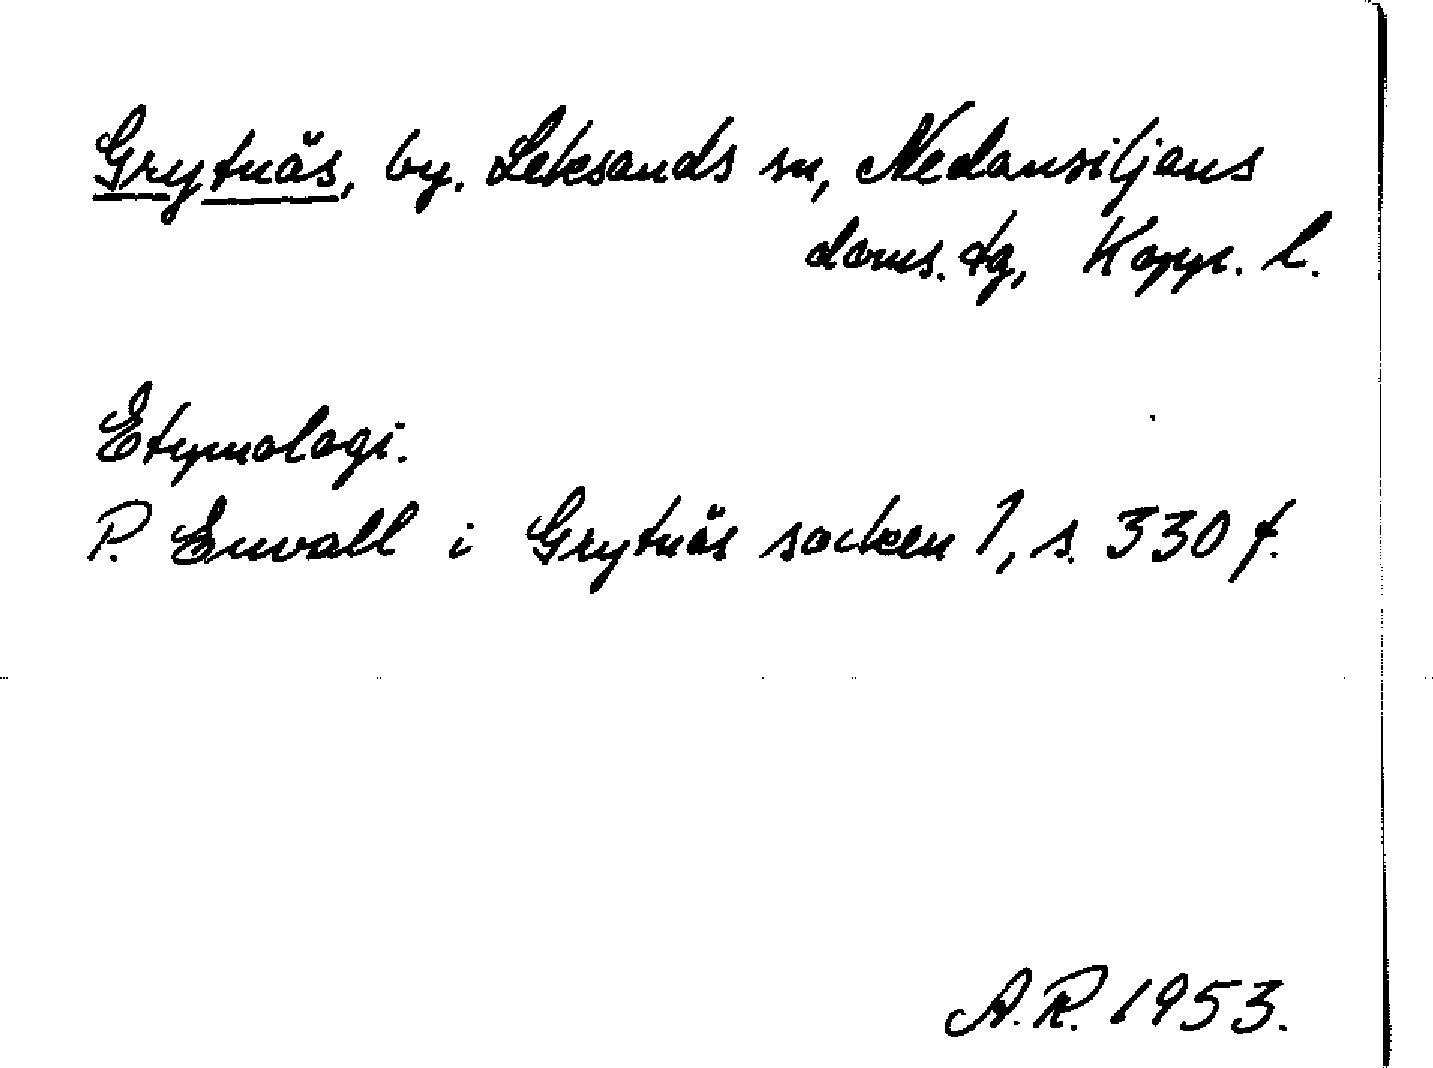 Grytnäs, by. Leksands sn, Nedansiljans
doms. tg, Kopp. l.
Etymologi.
P. Envall i Grytnäs socken 1, s. 330 f.
A.R. 1953.